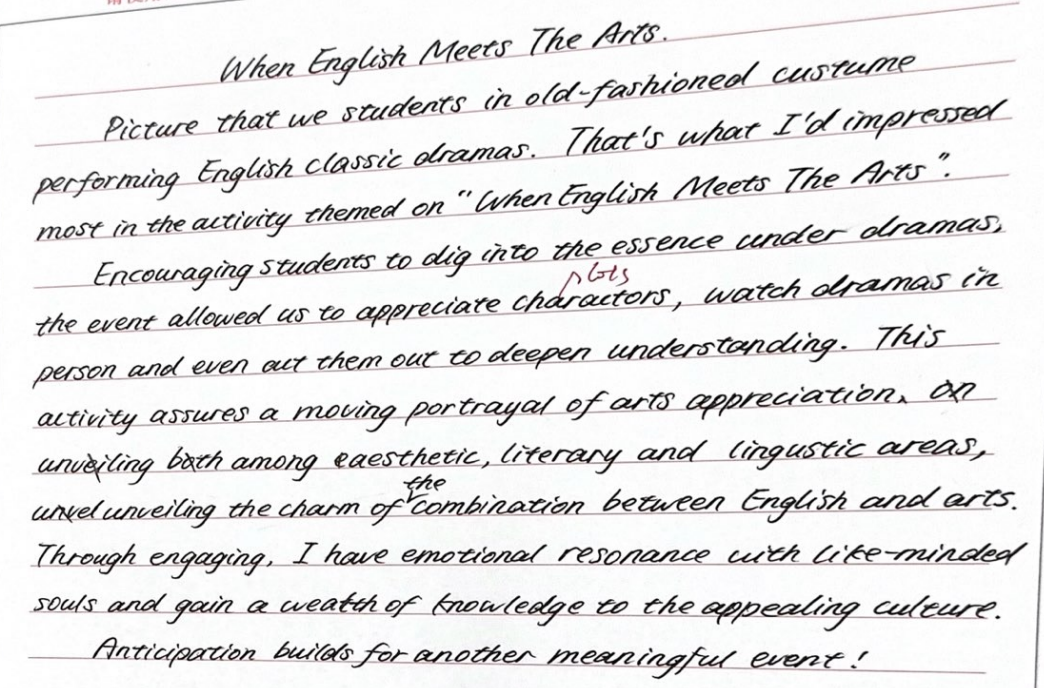 When English Meets The Arts.
Picture that we students in old-fashioned custume
performing English classic dramas. That's what I'd impressed
most in the activity themed on "When English Meets The Arts".
Encouraging students to dig into the essence under dramas,
the event allowed us to appreciate charactors, plots watch dramas in
person and even act them out to deepen understanding. This
activity assures a moving portrayal of arts appreciation, on
unveiling both among eaesthetic, literary and lingustic areas,
unvel unveiling the charm of the combination between English and arts.
Through engaging, I have emotional resonance with like-minded
souls and gain a wealth of knowledge to the appealing culture.
Anticipation builds for another meaningful event!